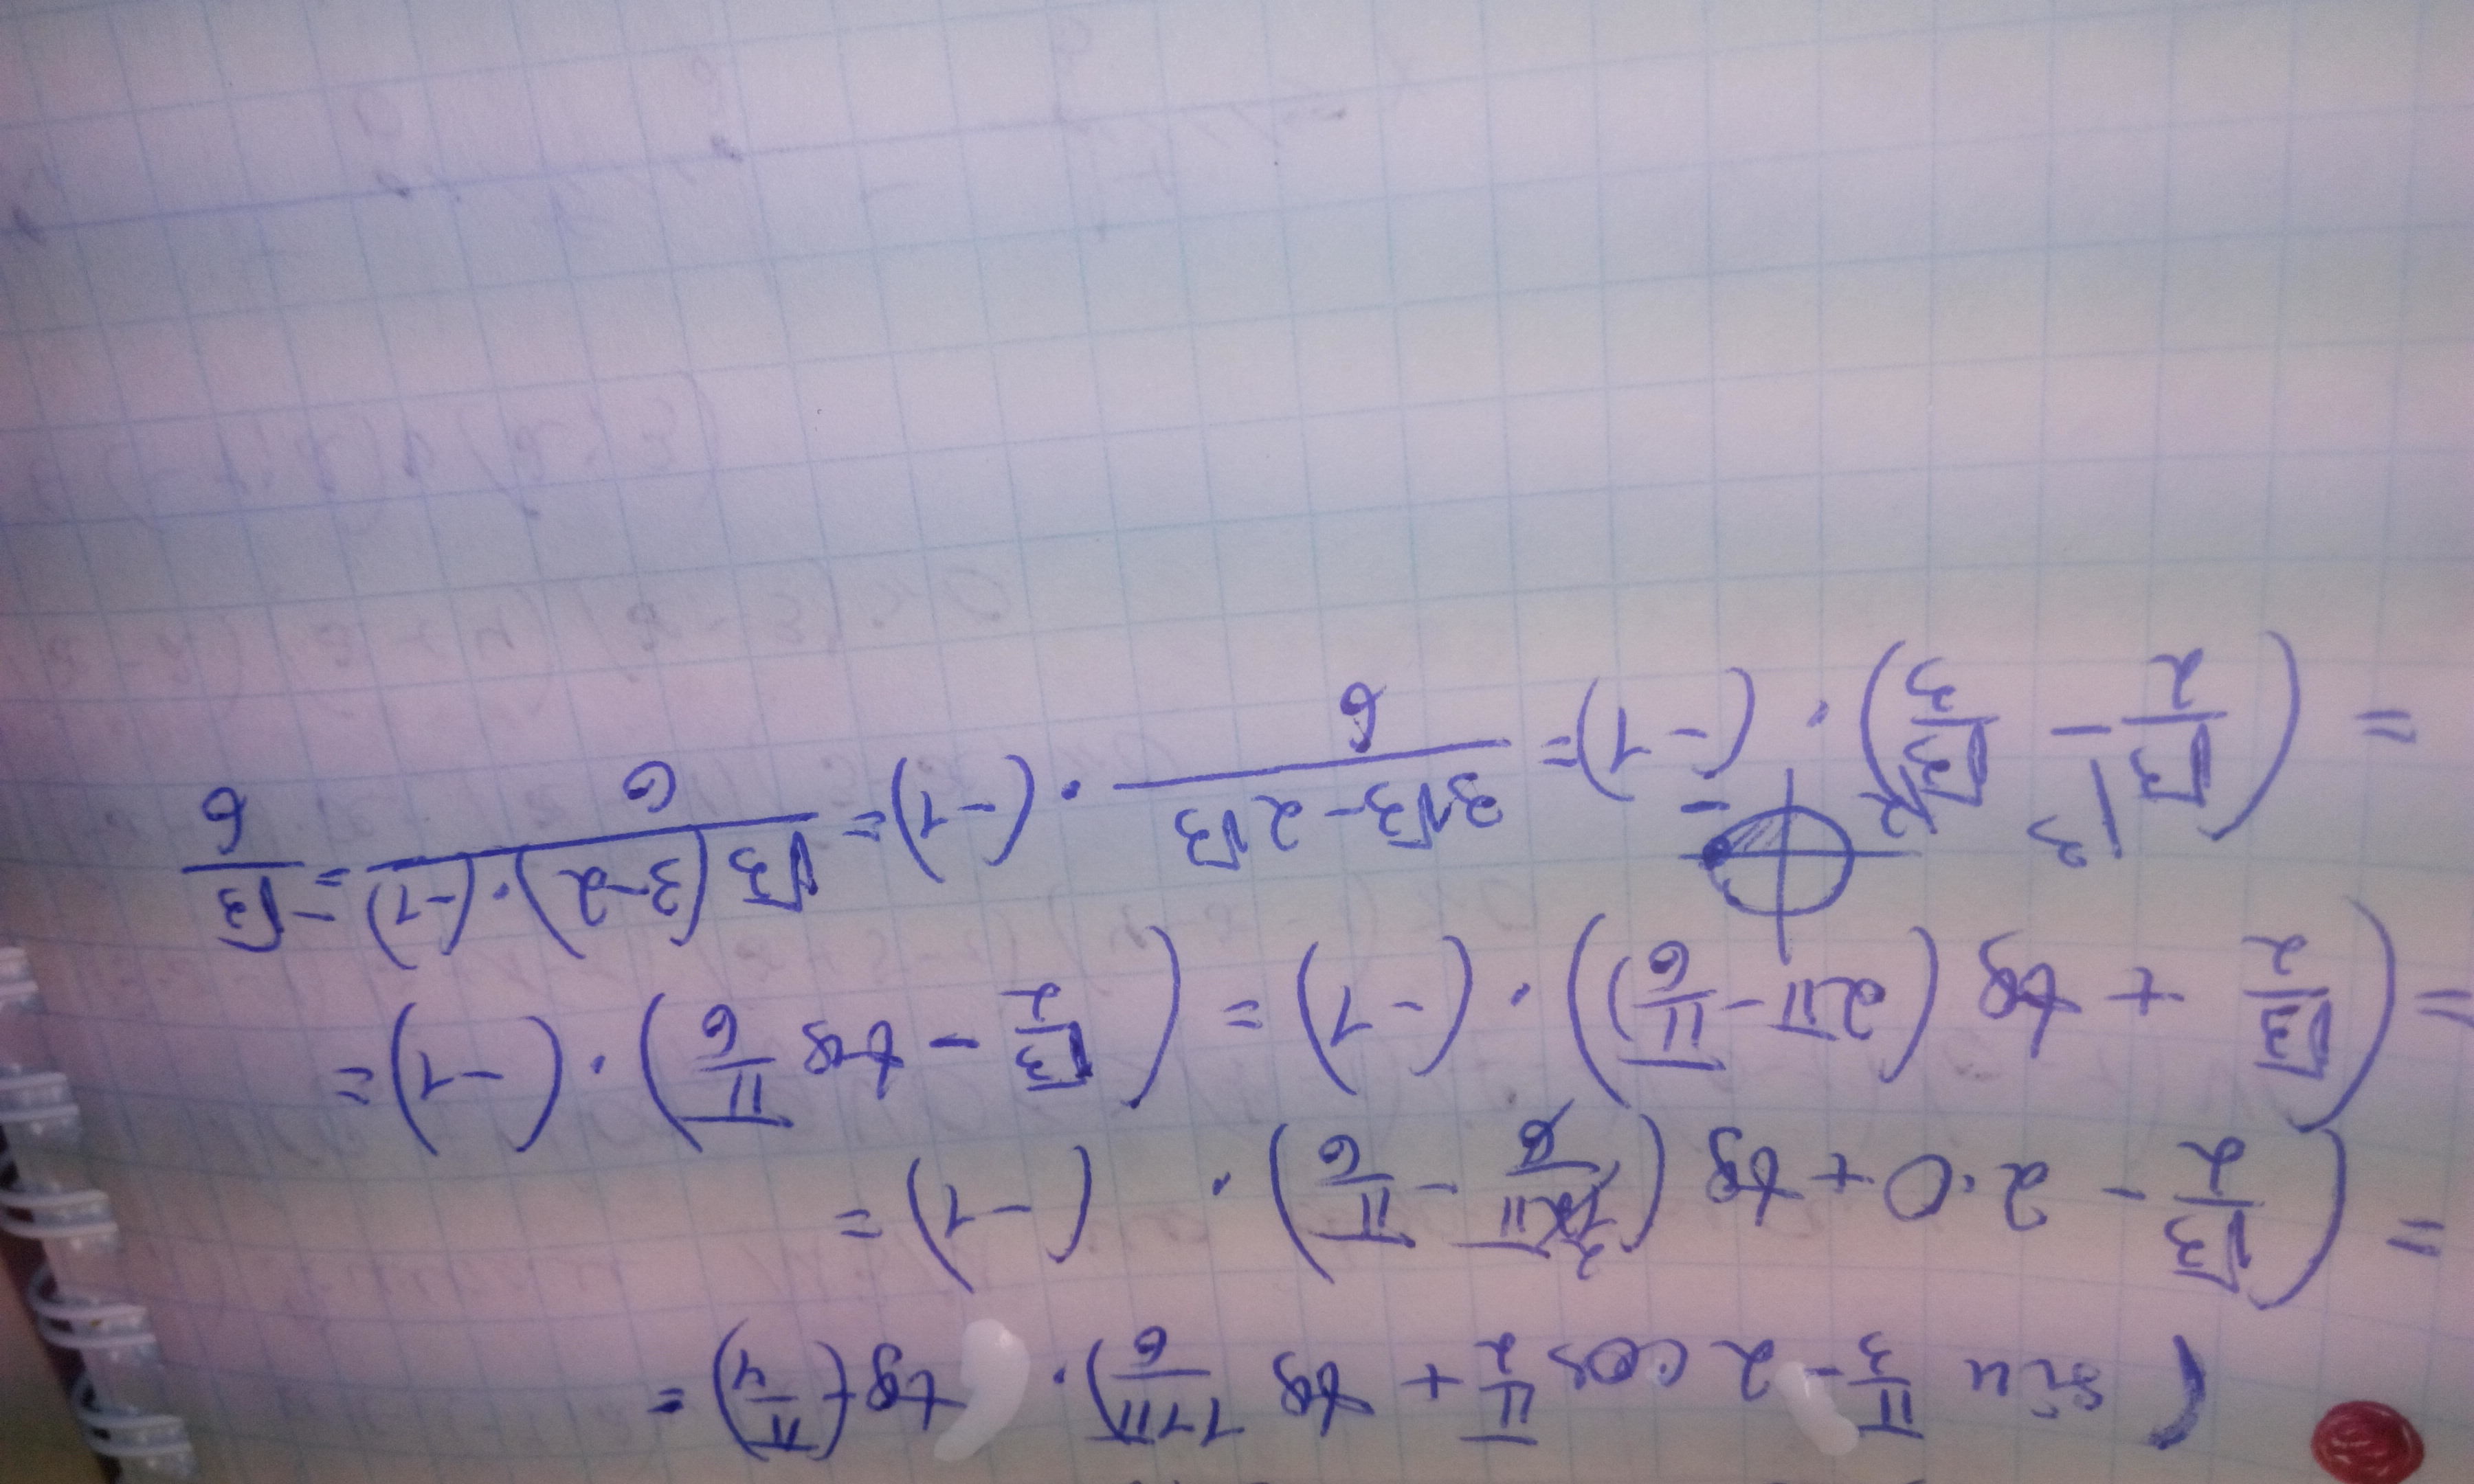 (sin π/3 - 2 cos π/2 + tg 11π/6) · tg (π/4) =
= (√3/2 - 2·0 + tg (12π/6 - π/6) · (-1) =
= (√3/2 + tg (2π - π/6)) · (-1) = (√3/2 - tg π/6) · (-1) =
= (√3/2 - √3/3) · (-1) = 3√3-2√3/6 · (-1) = √3(3-2)·(-1)/6 = -√3/6